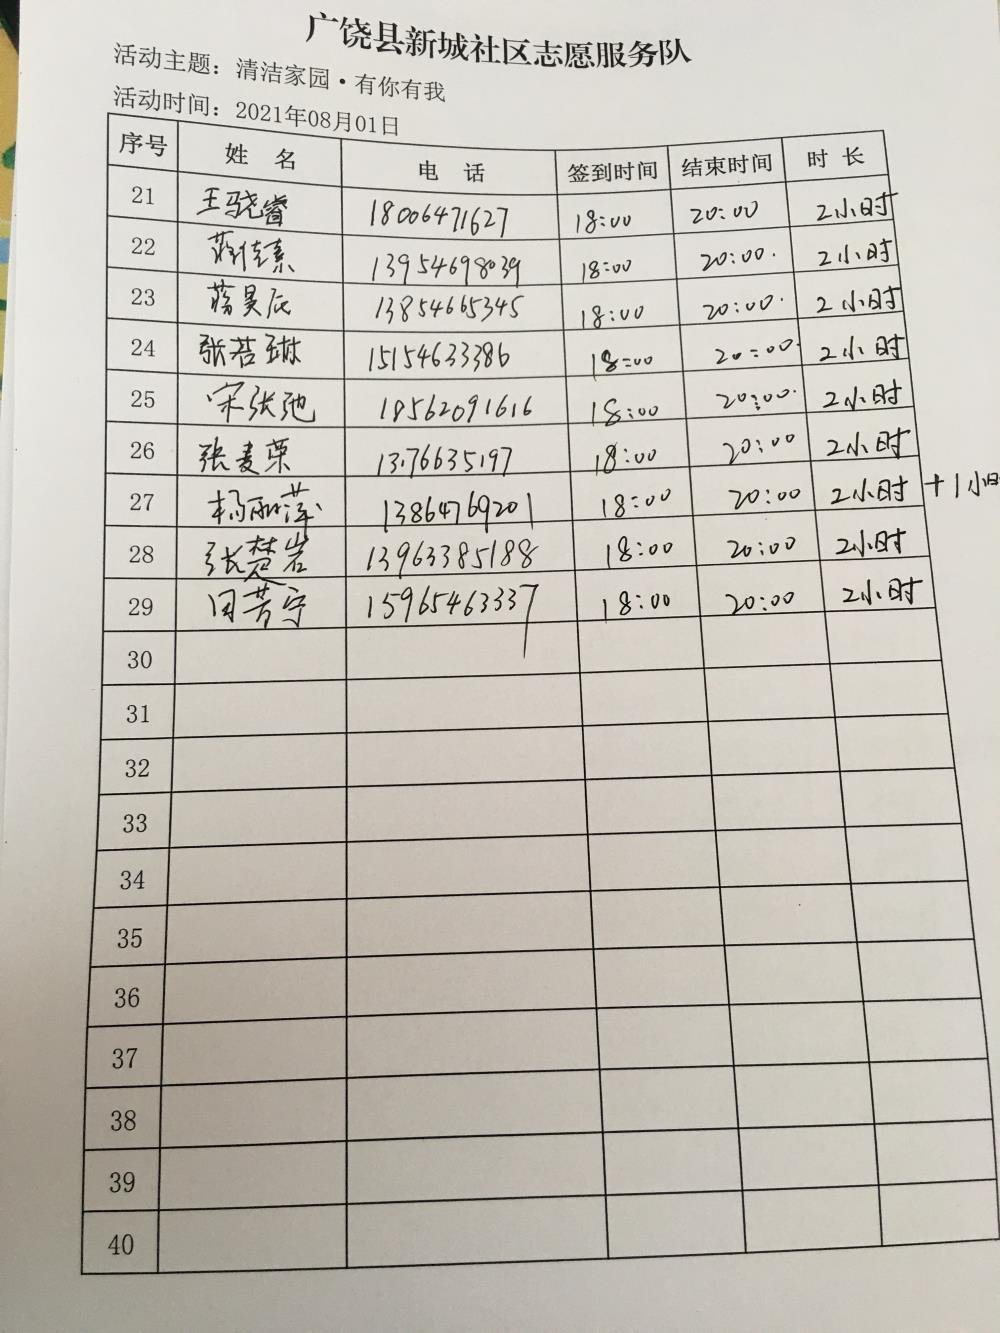 广饶县新城社区志愿服务队
活动主题：清洁家园·有你有我
活动时间：2021年08月01日
序号 姓 名 电 话 签到时间 结束时间 时 长
21 王骁睿 18006471627 18:00 20:00 2小时
22 蒋佳素 13954698039 18:00 20:00. 2小时
23 蒋昊辰 13854665345 18:00 20:00. 2小时
24 张若琳 15154633386 18:00 20:00. 2小时
25 宋张弛 18562091616 18:00 20:00. 2小时
26 张麦荣 13176635197 18:00 20:00 2小时
27 杨丽萍 13864769201 18:00 20:00 2小时 +1小时
28 张楚岩 13963385188 18:00 20:00 2小时
29 闫芳宇 15965463337 18:00 20:00 2小时
30
31
32
33
34
35
36
37
38
39
40